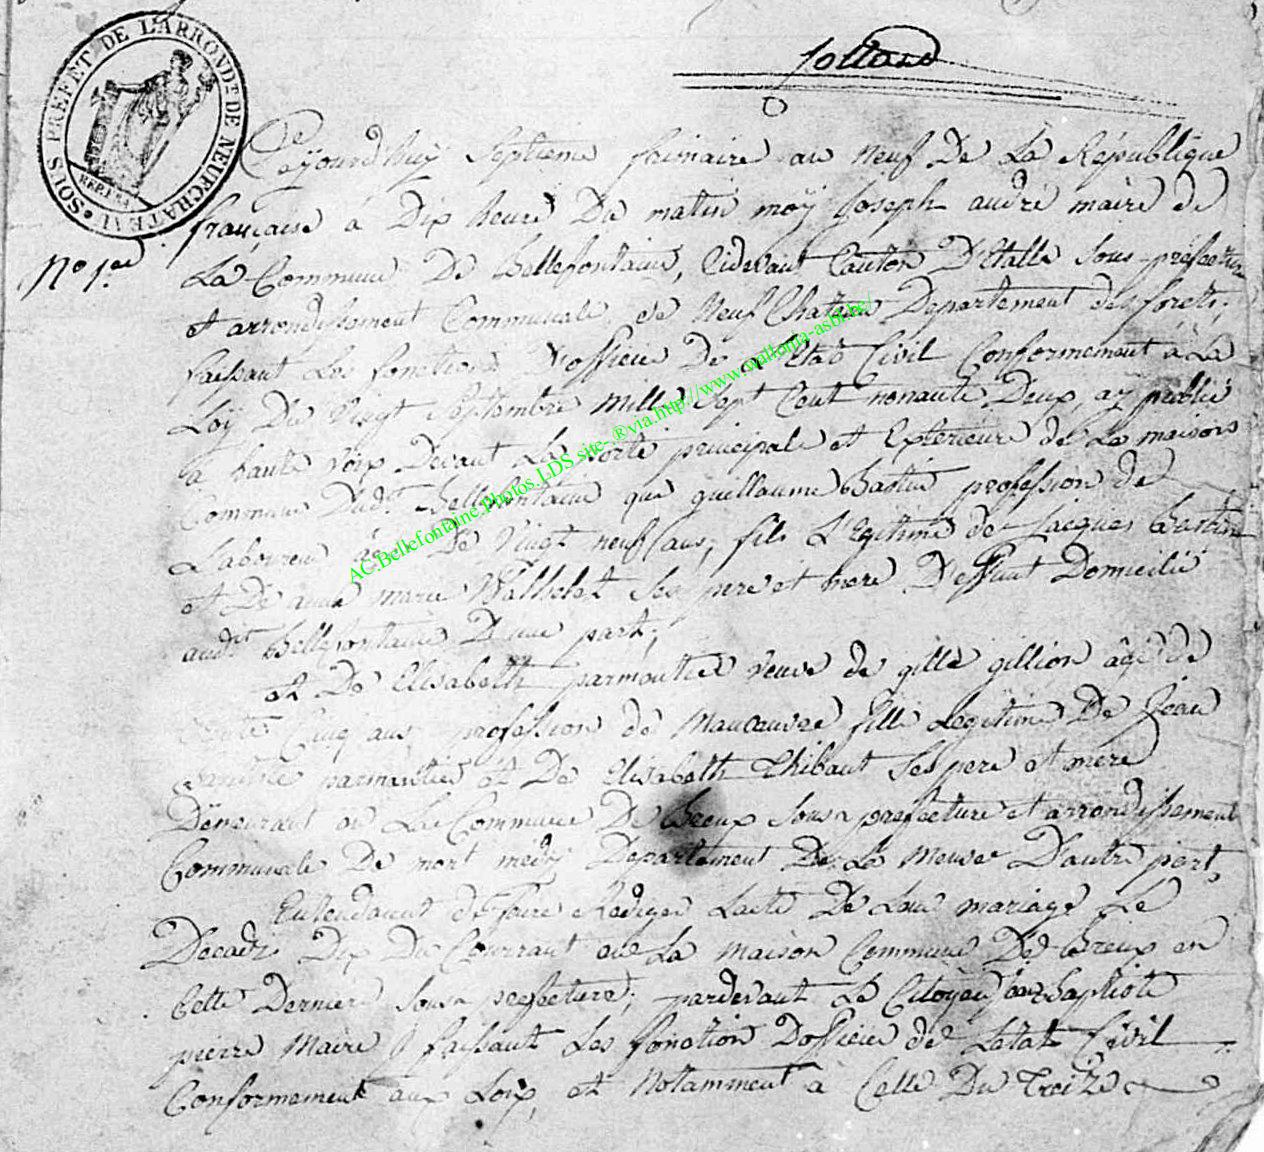 SOUS PREFET DE L'ARRONDt. DE NEUFCHATEAU
N° 1.er
Cejourd'huy Septieme frimaire an neuf De La République
française à Dix heure Du matin moÿ Joseph andré maire de
La Commune De Bellefontaine, Cidevant Canton D'Etalle Sous-préfecture
et arrondissement Communale de Neuf Chateau Departement des forets,
faissant Les fonctions d'officie De L'Etat Civil Conformement à La
Loÿ Du Vingt Septembre Mille Sept Cent nonante Deux, aÿ publié
à haute Voix Devant La Porte principale et Exterieure de La maison
Commune Dudt. Bellefontaine que guillaume Bastin profession de
Laborreu âgé De Vingt neuf ans, fils L'Egitime de Jacques Bastin
et De anne marie Ses pere et mere Deffunt Domicilié
audit Bellefontaine D'une part;
et De Elisabeth parmentier veuve de gille gillion âgé de
Trente Cinq ans profession de Manœuvre fille Legitime De Jean
Baptiste parmentier et De Elisabeth Thibaut Ses pere et mere
Demeurant en La Commune De Breux Sous-prefecture et arrondissement
Communale De mont médÿ Departement De La Meuse D'autre part,
Entendant de faire Rediger L'acte De Leur mariage Le
Decadi Dix Du Courrant en La maison Commune De Breux en
Cette Derniere Sous prefecture; pardevant Le Citoyen Jean Baptiste
pierre Maire faissant Les fonction D'officie de L'etat Civil
Conformement aux Loix, et Notamment à Celle Du Treize
AC.Bellefontaine.Photos.LDS site-.®via.http://www.wallonia-asbl.be/